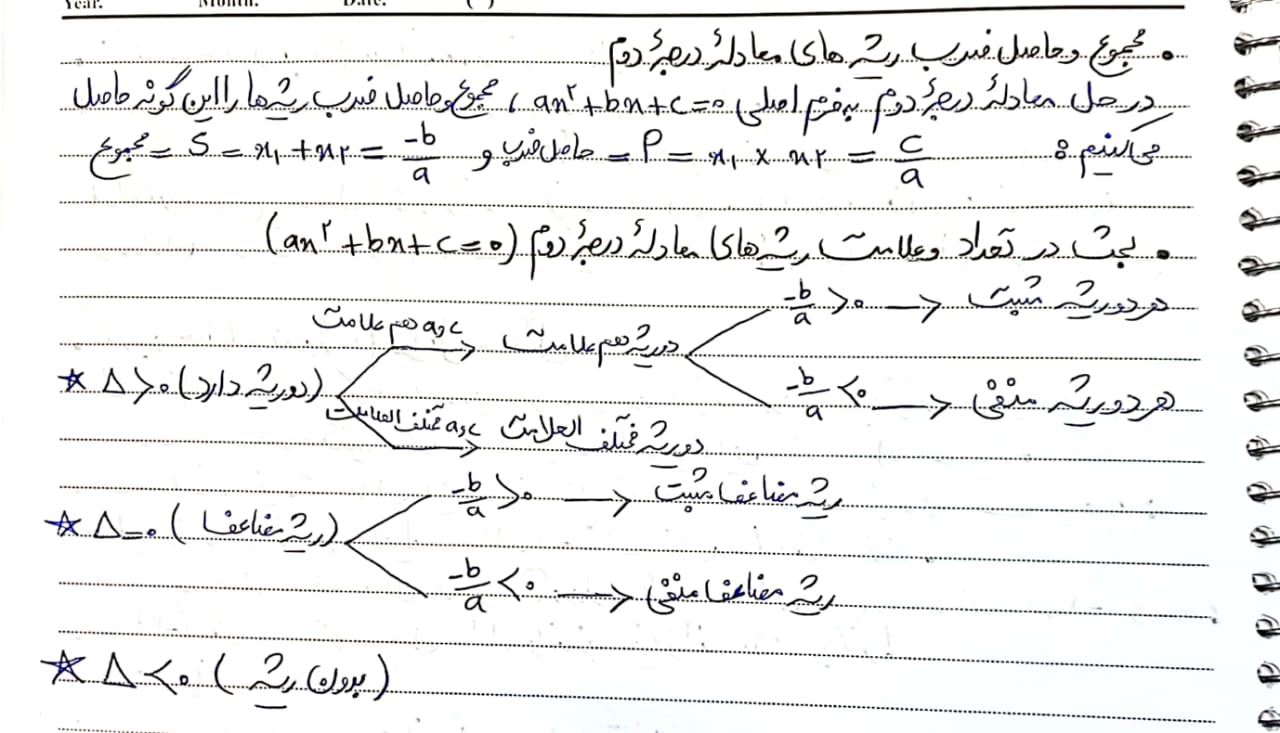 Year. Month. Date. ( )
• مجموع و حاصل ضرب ریشه های معادلهٔ درجهٔ دوم
در حل معادلهٔ درجهٔ دوم به فرم اصلی ax²+bx+c=0 ، مجموع و حاصل ضرب ریشه‌ها را این گونه حاصل
می‌کنیم : مجموع = S = x₁ + x₂ = -b/a و حاصل ضرب = P = x₁ × x₂ = c/a
• بحث در تعداد و علامت ریشه‌های معادلهٔ درجهٔ دوم (ax² + bx + c = 0)
-b/a > 0 → هر دو ریشه مثبت
a و c هم علامت → دو ریشه هم علامت
★ Δ > 0 (دو ریشه دارد)
-b/a < 0 → هر دو ریشه منفی
a و c مختلف العلامت → دو ریشه مختلف العلامت
-b/a > 0 → ریشه مضاعف مثبت
★ Δ = 0 (ریشه مضاعف)
-b/a < 0 → ریشه مضاعف منفی
★ Δ < 0 (بدون ریشه)